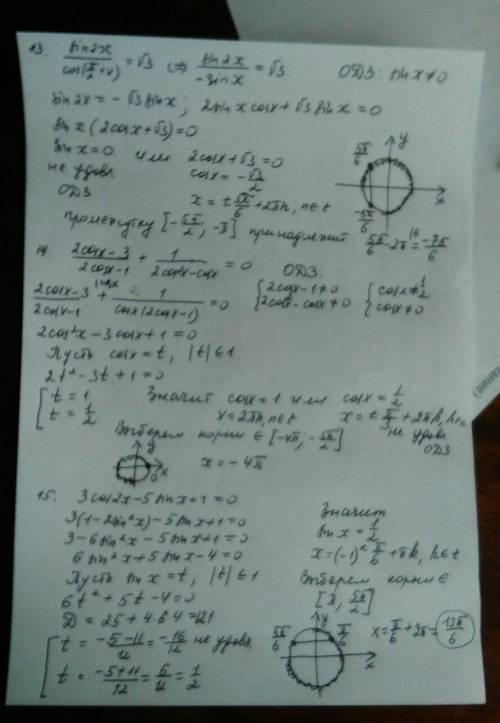 13. sin2x / cos(π/2+x) = √3 ⟺ sin2x / -sinx = √3 ОДЗ: sinx≠0
sin2x = -√3 sinx; 2sinx cosx + √3 sinx = 0
sinx(2cosx+√3)=0
sinx=0 или 2cosx+√3=0
не удовл. cosx = -√3/2
ОДЗ x = ±5π/6 + 2πn, n∈z
y
5π/6
x
-5π/6
Промежутку [-5π/2; -π] принадлежит 5π/6 - 2π = -7π/6
14. 2cosx-3 / 2cosx-1 + 1 / 2cos²x-cosx = 0 ОДЗ.
2cosx-3 \cosx / 2cosx-1 + 1 / cosx(2cosx-1) = 0 { 2cosx-1≠0 { cosx≠1/2
2cos²x-cosx≠0 cosx≠0
2cos²x-3cosx+1=0
Пусть cosx=t, |t|≤1
2t²-3t+1=0
[ t=1 Значит cosx=1 или cosx=1/2
t=1/2 x=2πn, n∈z x=±π/3+2πk, k∈z
не удовл.
ОДЗ.
Выберем корни ∈ [-4π; -5π/2]
y
0 x
x = -4π
15. 3cos2x-5sinx+1=0
3(1-2sin²x)-5sinx+1=0
3-6sin²x-5sinx+1=0
6sin²x+5sinx-4=0
Пусть sinx=t, |t|≤1
6t²+5t-4=0
D=25+4·6·4=121
[ t = -5-11 / 12 = -16/12 не удовл.
t = -5+11 / 12 = 6/12 = 1/2
Значит
sinx=1/2
x=(-1)ᵏ π/6 + πk, k∈z
Выберем корни ∈
[π; 5π/2]
y
5π/6 π/6
x
x = π/6 + 2π = 13π/6